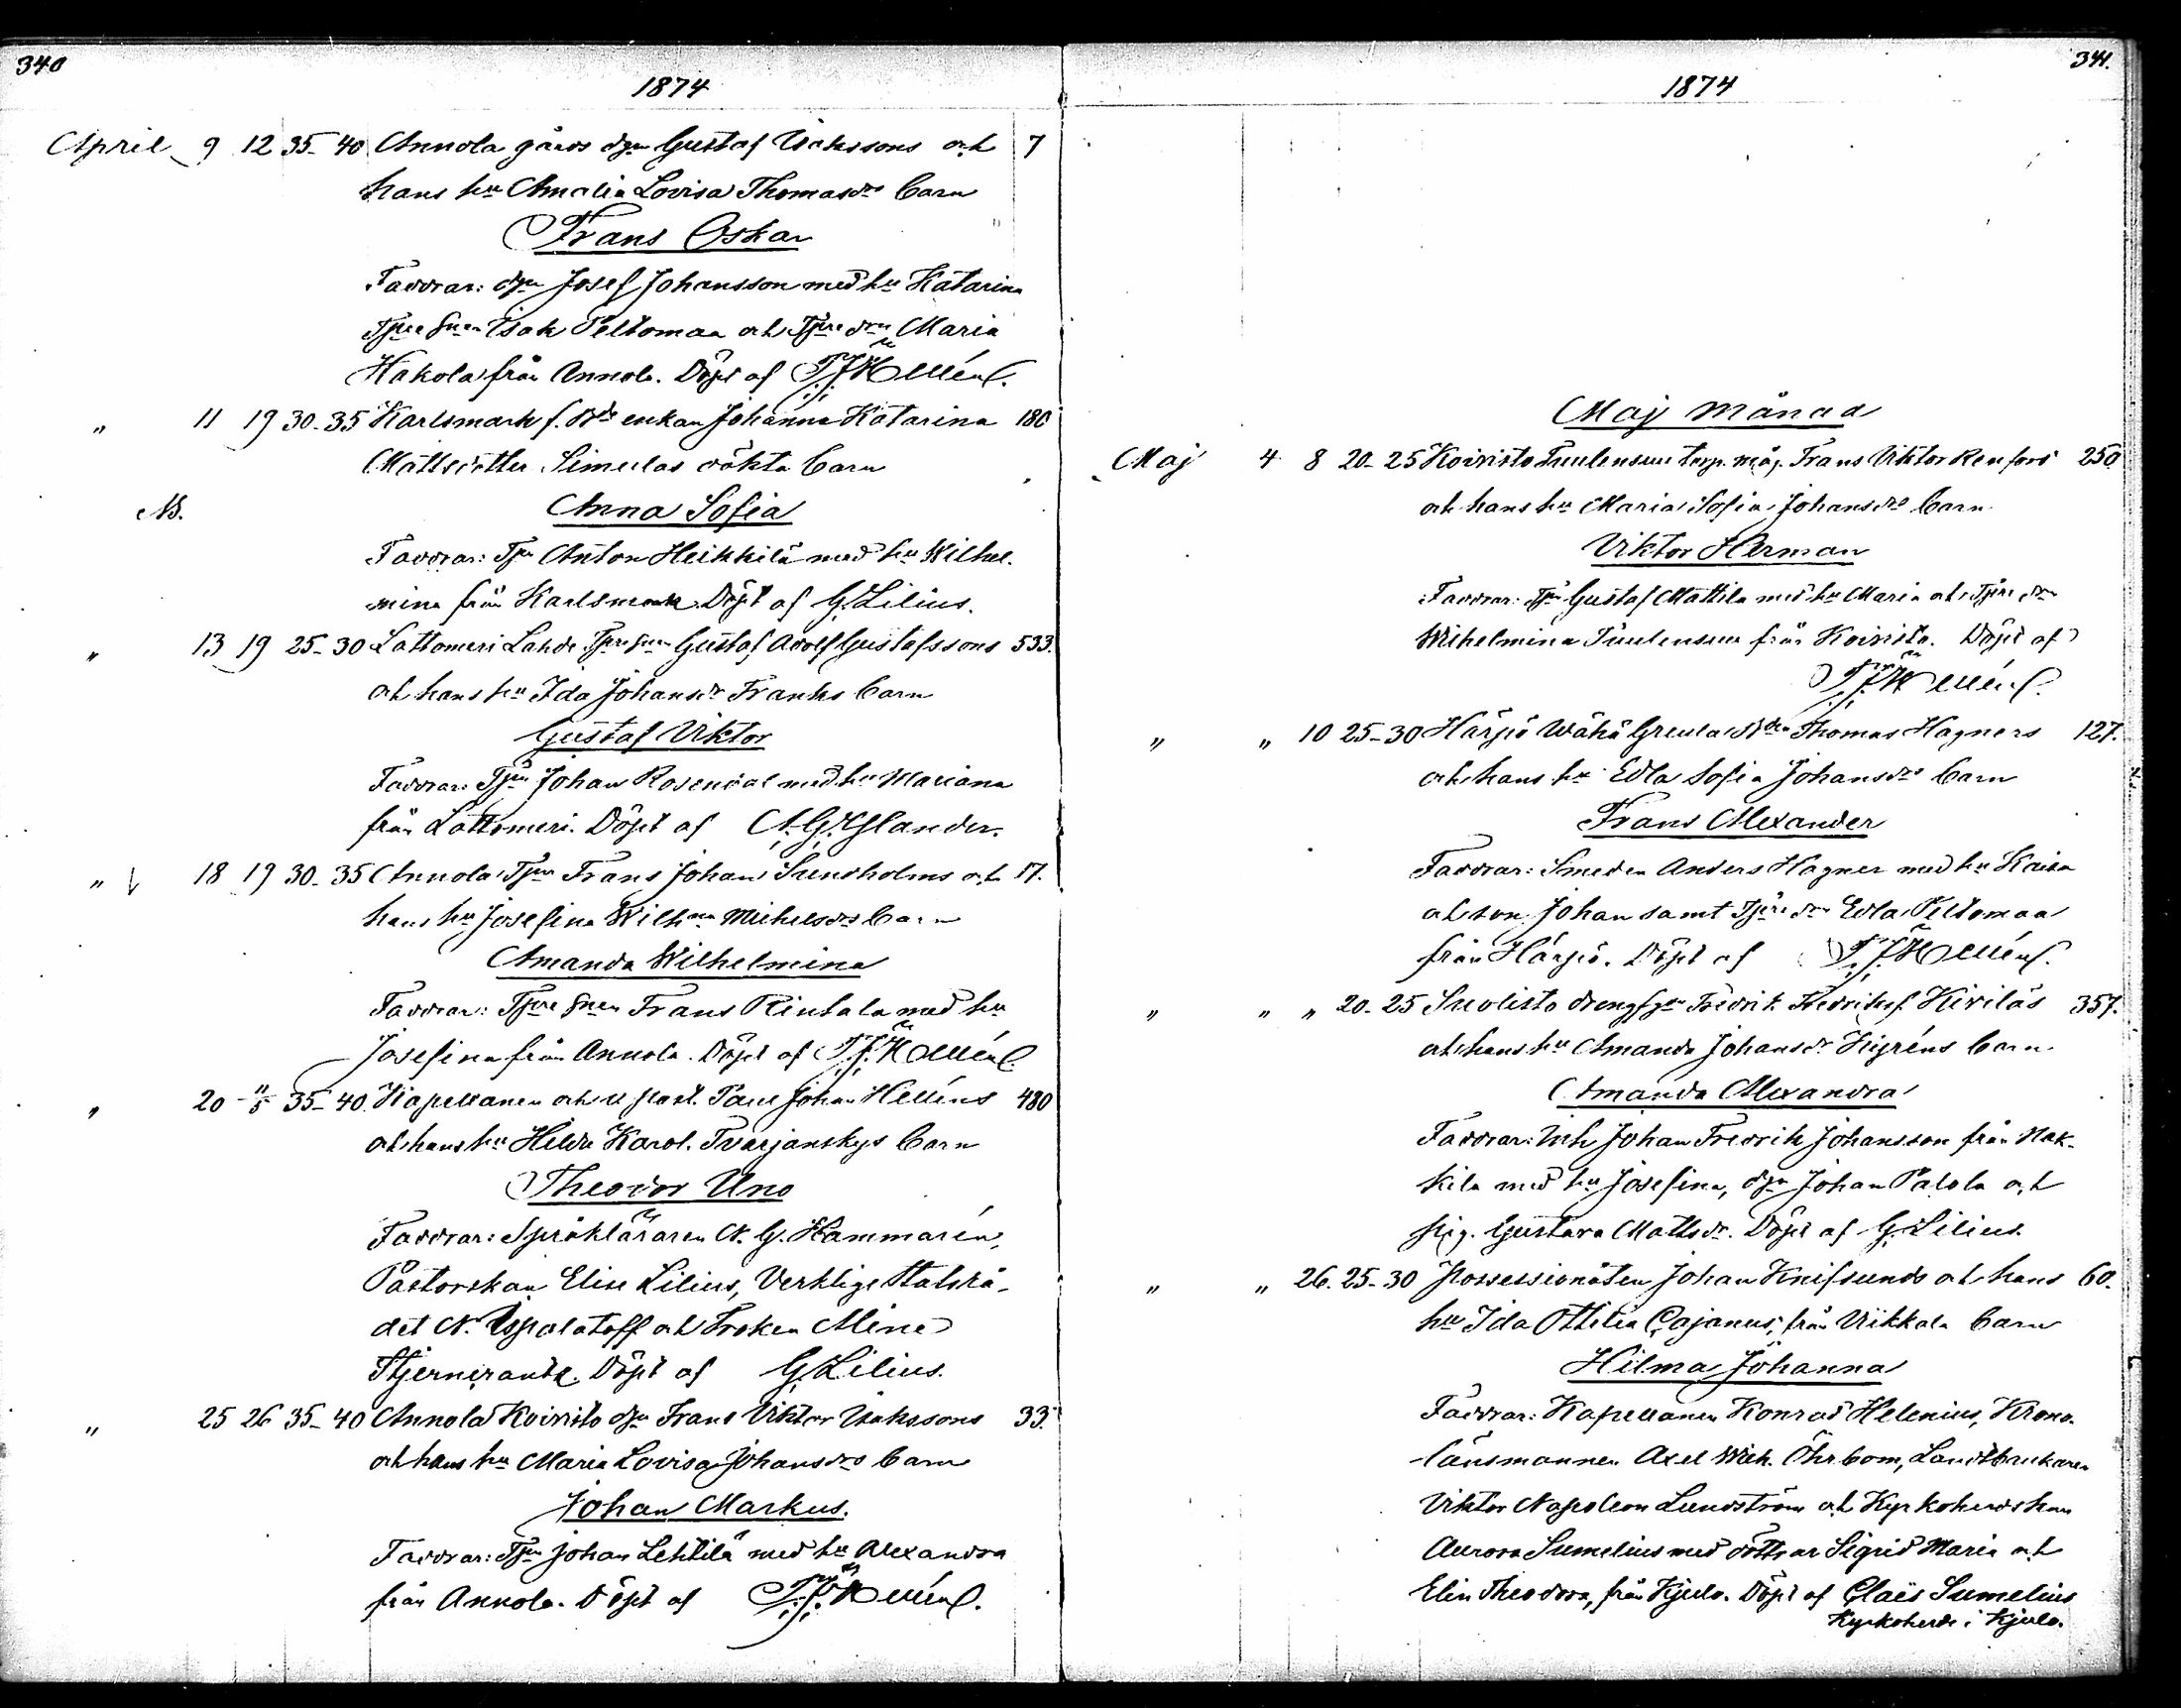 340
1874
April 9 12 35-40 Annola gårds dgn Gustaf Isakssons och 7
hans hu Amalia Lovisa Thomasdrs barn
Frans Oskar
Faddrar: dgn Josef Johansson med hu Katarina
Isak Peltomaa och Maria
Hakola från Annola. Döpt af P.J. Hellén.
" 11 19 30-35 Karlsmark f. enkan Johanna Katarina 180
Mattsdotter Simulas oäkta barn
NB. Anna Sofia
Faddrar: Tjn Anton Heikkilä med hu Wilhel-
mina från Karlsmark. Döpt af G. Lilius.
" 13 19 25-30 Lattomeri Lahde Gustaf Adolf Gustafssons 533.
och hans hu Ida Johansdr Franks barn
Gustaf Viktor
Faddrar: Tjn Johan Rosendal med hu Mariana
från Lattomeri. Döpt af
" 18 19 30-35 Annola Tjn Frans Johan Stensholms och 17.
hans hu Josefina Wilhna Michelsdrs barn
Amanda Wilhelmina
Faddrar: Frans Rintala med hu
Josefina från Annola. Döpt af P.J. Hellén.
" 20 11/5 35-40 Kapellanen och v. past. Paul Johan Helléns 480
och hans hu Hilda Karol. Tvarjanskys barn
Theodor Uno
Faddrar: Språkläraren N. G. Hammarén,
Pastorskan Elise Lilius, Verklige Statsrå-
det N. Ispolatoff och Fröken Aline
Stjerncrantz. Döpt af G. Lilius.
" 25 26 35-40 Annola Koivisto dgn Frans Viktor Isakssons 33.
och hans hu Maria Lovisa Johansdrs barn
Johan Markus.
Faddrar: Tjn Johan Lehtilä med hu Alexandra
från Annola. Döpt af P.J. Hellén.
341.
1874
Maj månad
Maj 4 8 20-25 Koivisto Tuulensuu torp. måg. Frans Viktor Renfors 250
och hans hu Maria Sofia Johansdrs barn
Viktor Herman
Faddrar: Tjn Gustaf Mattila med hu Maria och
Wilhelmina Tuulensuu från Koivisto. Döpt af
P.J. Hellén.
" " 10 25-30 Härpö Wähä Greula Thomas Hagners 127.
och hans hu Edla Sofia Johansdrs barn
Frans Alexander
Faddrar: Smeden Anders Hagner med hu Kaisa
och son Johan samt Edla Peltomaa
från Härpö. Döpt af P.J. Hellén.
" " " 20-25 Suolisto Fredrik Fredriksf. Kiviläs 357.
och hans hu Amanda Johansdr Higréns barn.
Amanda Alexandra
Faddrar: Inh Johan Fredrik Johansson från Nak-
kila med hu Josefina, dgn Johan Palola och
pig. Gustava Mattsdr. Döpt af G. Lilius.
" " 26. 25-30 Possessionäten Johan Knifsunds och hans 60.
hu Ida Othilia Cajanus, från Viikkala barn
Hilma Johanna
Faddrar: Kapellanen Konrad Helenius, Krono-
länsmannen Axel Wilh. Öhrbom, Landtbrukaren
Viktor Napoleon Lundström och Kyrkoherdskan
Aurora Sumelius med döttrar Sigrid Maria och
Elin Theodora, från Kjulo. Döpt af Claës Sumelius
Kyrkoherde i Kjulo.